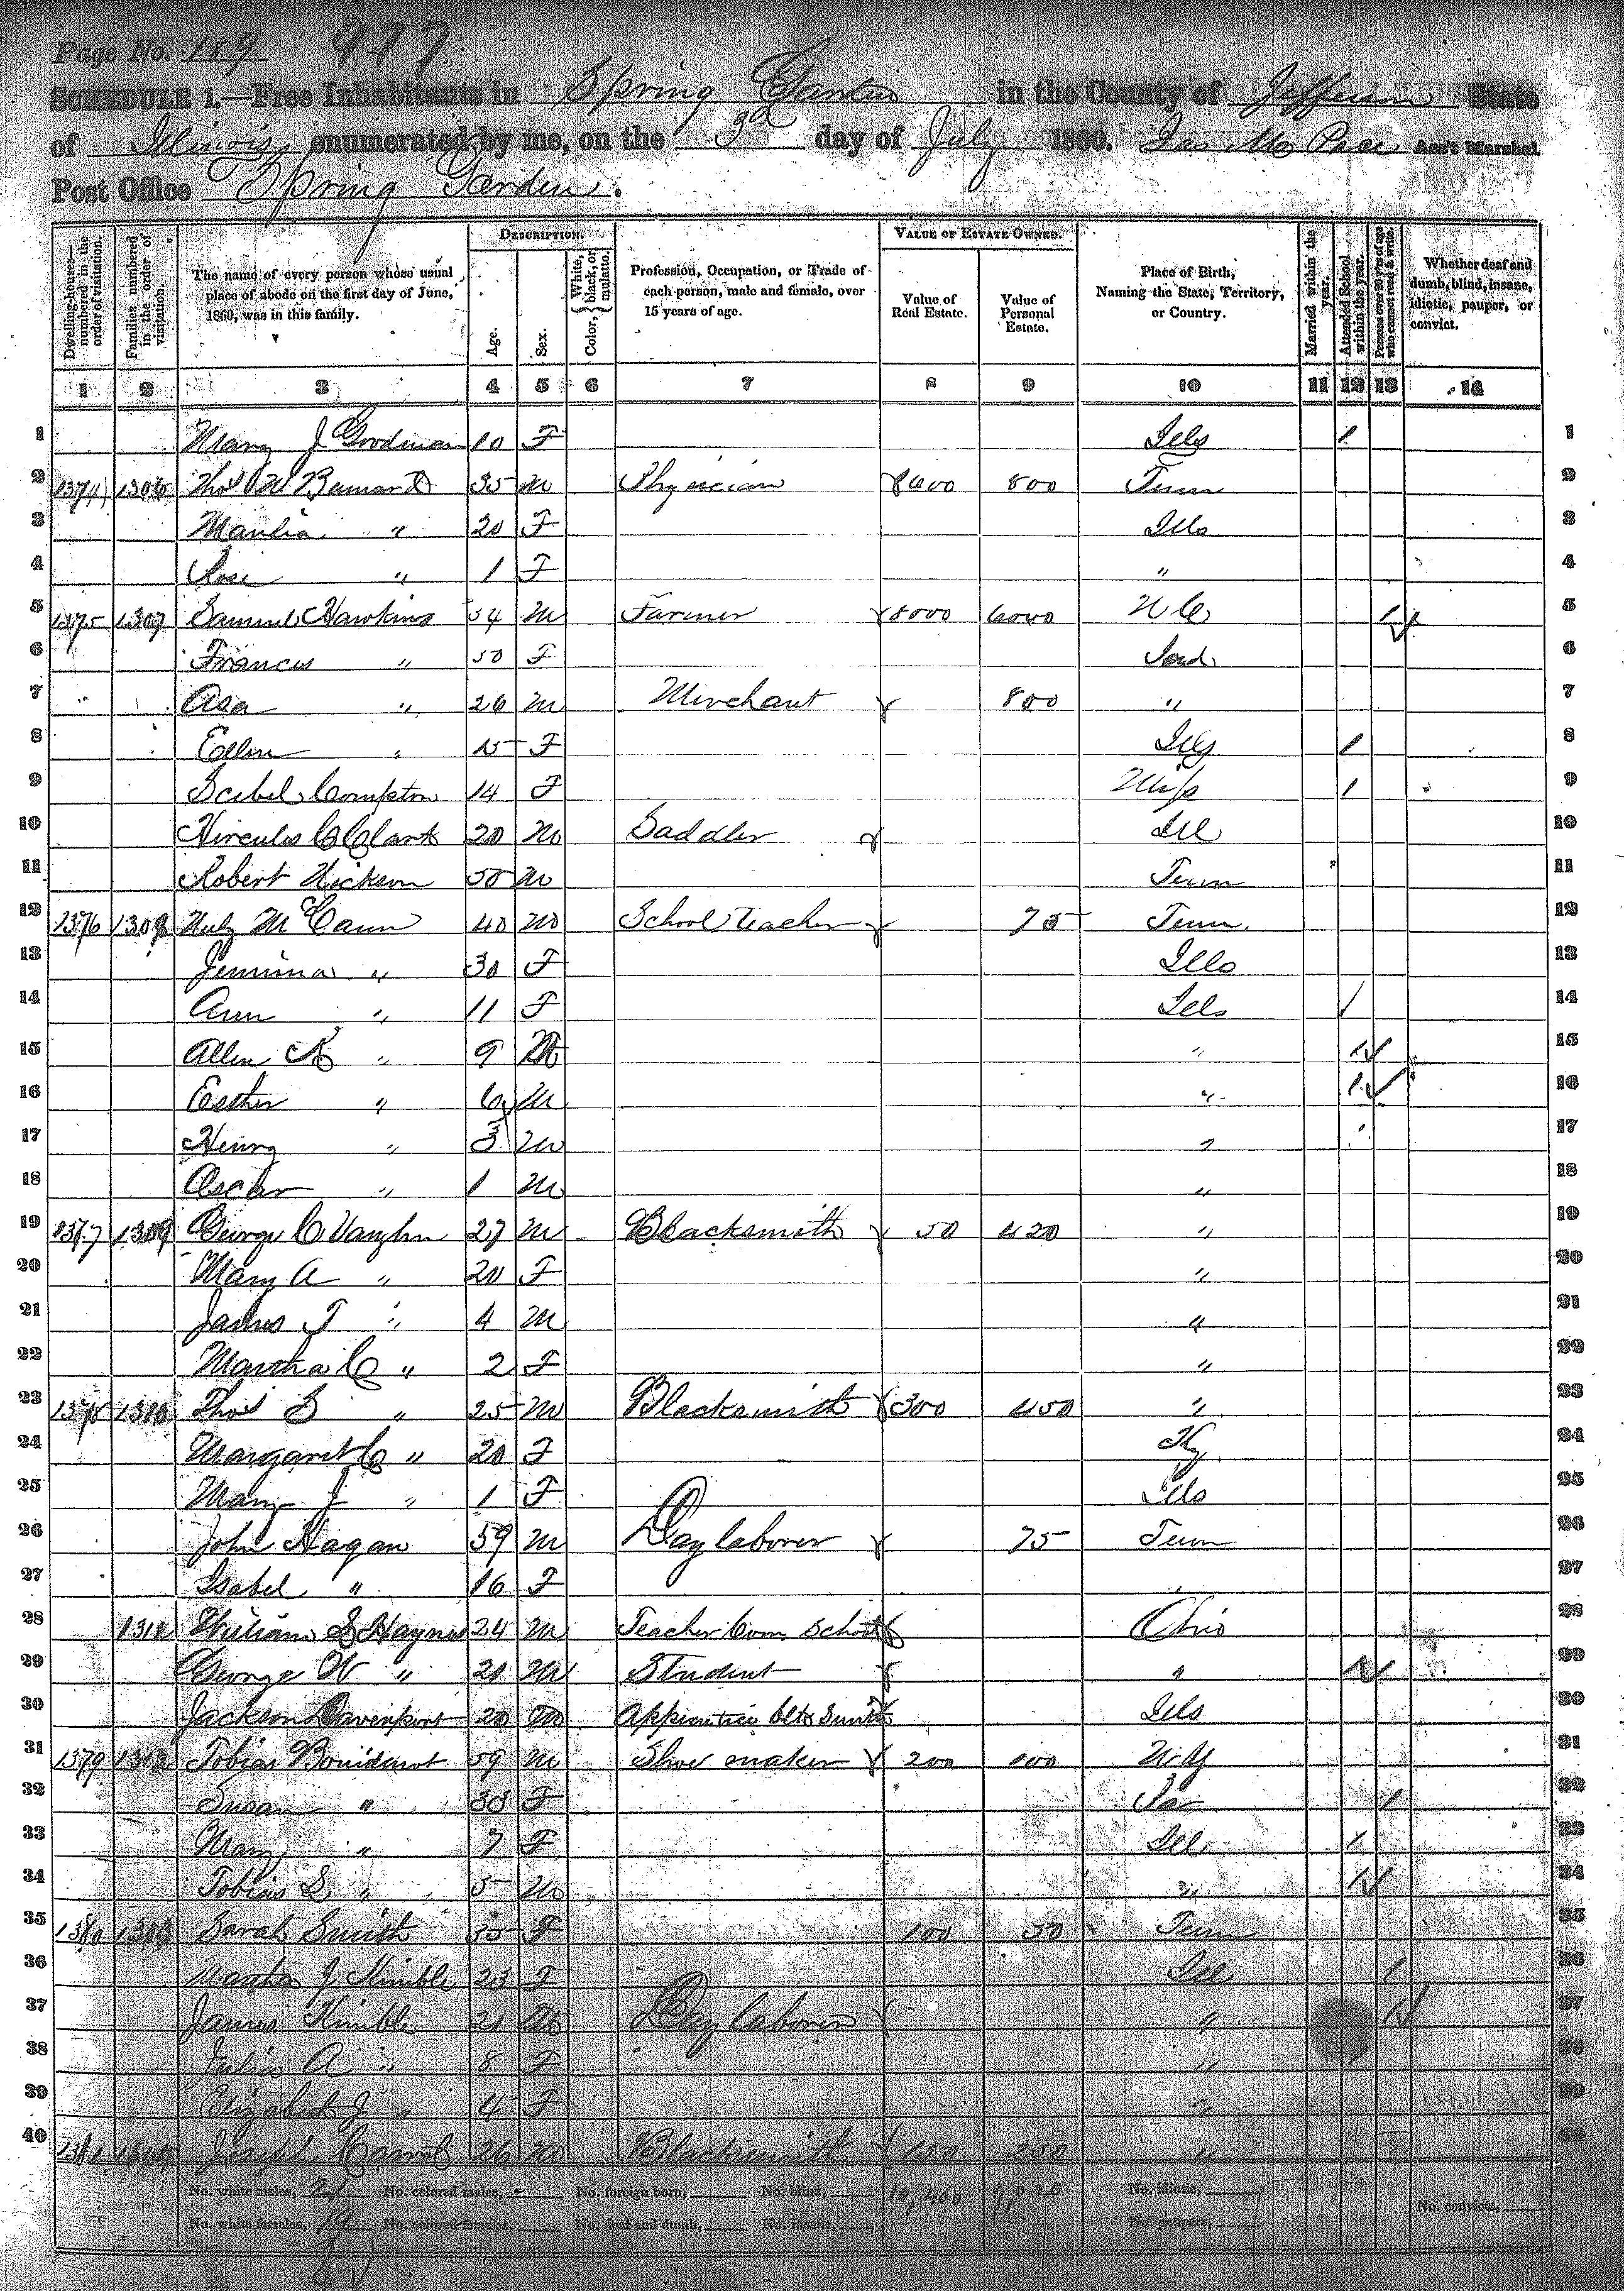 Page No. 189 977
SCHEDULE 1.—Free Inhabitants in Spring Garden in the County of Jefferson State
of Illinois enumerated by me, on the 3d day of July 1860. Jas M Pace Ass't Marshal.
Post Office Spring Garden.
Dwelling-houses—numbered in the order of visitation.
Families numbered in the order of visitation.
The name of every person whose usual place of abode on the first day of June, 1860, was in this family.
DESCRIPTION.
Age.
Sex.
Color, { White, black, or mulatto.
Profession, Occupation, or Trade of each person, male and female, over 15 years of age.
VALUE OF ESTATE OWNED.
Value of Real Estate.
Value of Personal Estate.
Place of Birth, Naming the State, Territory, or Country.
Married within the year.
Attended School within the year.
Persons over 20 y'rs of age who cannot read & write.
Whether deaf and dumb, blind, insane, idiotic, pauper, or convict.
1 2 3 4 5 6 7 8 9 10 11 12 13 14
1 Mary J Goodman 10 F Ills 1 1
2 1374 1306 Thos W 35 m Physician 800 Tenn 2
3 " 20 F Ills 3
4 Rose " 1 F " 4
5 1375 1307 Samuel Hawkins 54 m Farmer 8000 6000 N C 1 5
6 Frances " 50 F Ind. 6
7 Asa " 26 m Merchant 800 " 7
8 Ellen " 15 F Ills 1 8
9 Compton 14 F Miss 1 9
10 Hercules C Clark 20 m Saddler Ill 10
11 Robert 50 m Tenn 11
12 1376 1308 McCann 40 m School Teacher 75 Tenn. 12
13 Jemima " 30 F Ills 13
14 Ann " 11 F Ills / 14
15 Allen K " 9 M " 1 15
16 Esther " 6 m " 1 16
17 Henry " 3 m " 17
18 Oscar " 1 m " 18
19 1377 1309 George C Vaughn 27 m Blacksmith 50 420 " 19
20 Mary A " 20 F " 20
21 James T " 4 m " 21
22 Martha C " 2 F " 22
23 1378 1310 Thos S " 25 m Blacksmith 300 450 " 23
24 Margaret C " 20 F Ky 24
25 Mary J " 1 F Ills 25
26 John Hagan 59 m Day laborer 75 Tenn 26
27 Isabel " 16 F " 27
28 William S Haynes 24 m Teacher Com School Ohio 28
29 George W " 21 m Student " 1 29
30 Jackson Davenport 20 m Apprentice Blk Smith Ills 30
31 1379 1312 Tobias 59 m Shoe maker 200 100 N.Y 31
32 Susan " 33 F 1 32
33 Mary " 7 F Ill 1 33
34 Tobias L " 5 m " 1 34
35 1380 1313 Sarah Smith 55 F 100 50 Tenn 35
36 Martha J Kimble 23 F Ill 1 36
37 James Kimble 21 m Day laborer " 1 37
38 Julia A " 8 F " 38
39 Elizabeth J " 4 F " 39
40 1381 1314 Joseph Carroll 26 m Blacksmith 150 250 " 40
No. white males, 21 No. colored males, No. foreign born, No. blind, 10,400 No. idiotic,
No. white females, 19 No. colored females, No. deaf and dumb, No. insane, No. paupers, No. convicts,